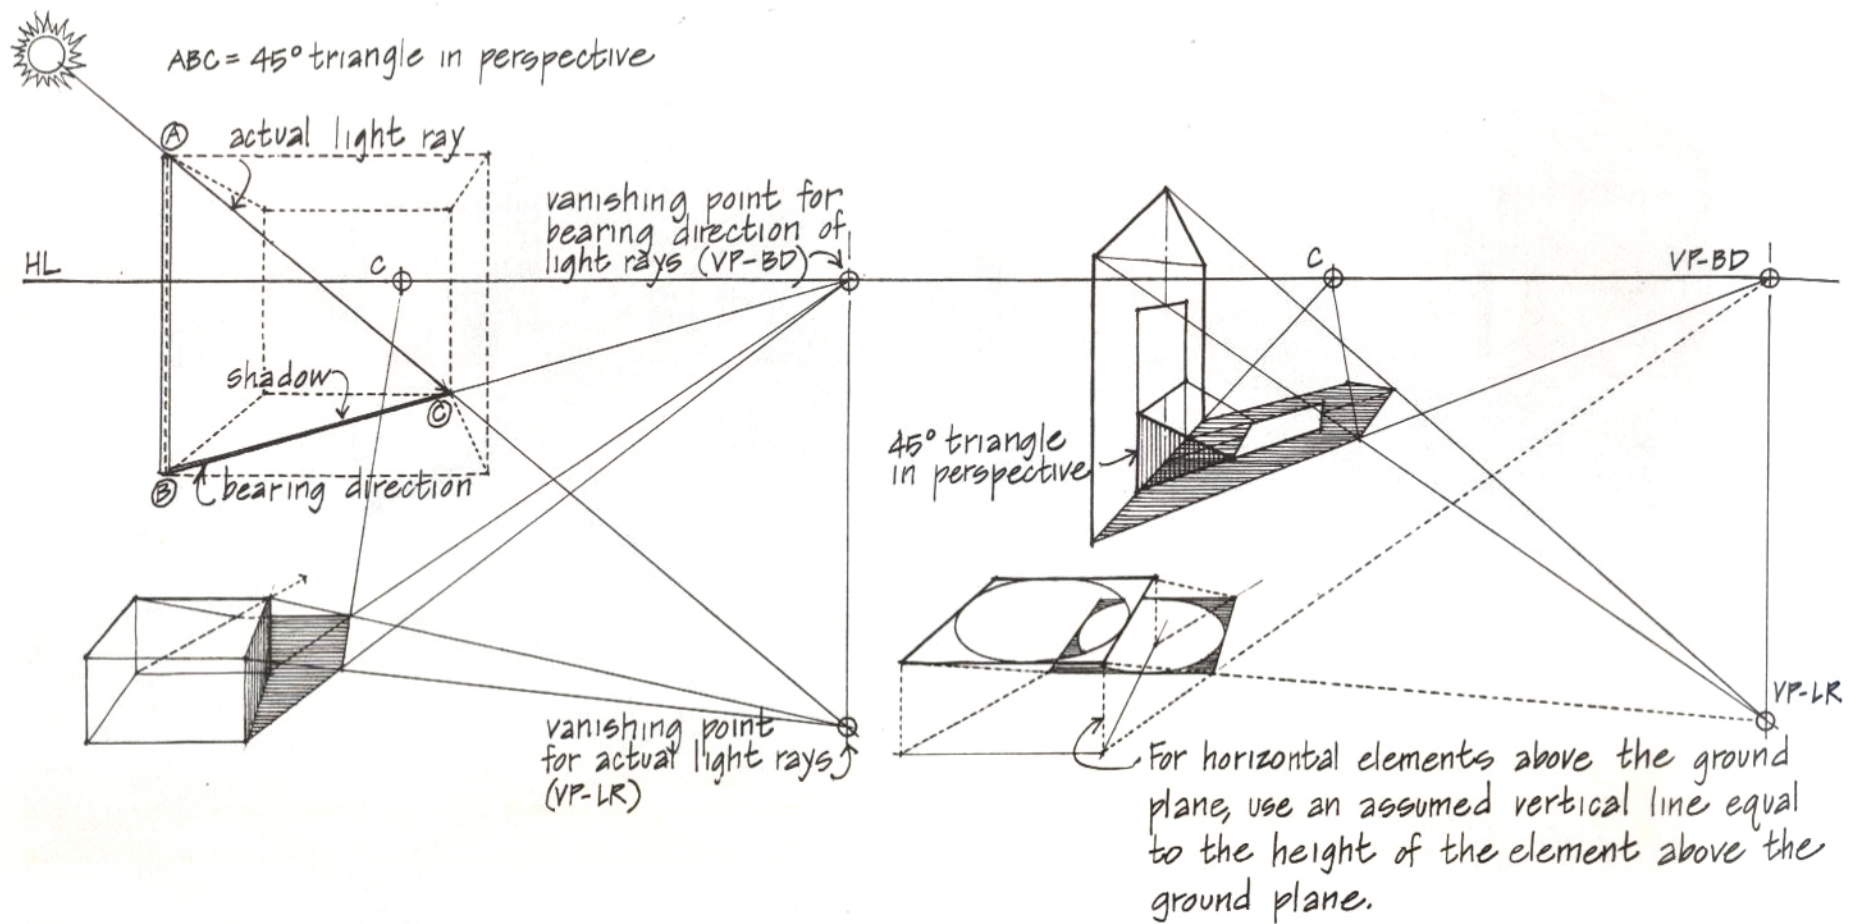 ABC = 45° triangle in perspective
A
actual light ray
vanishing point for
bearing direction of
light rays (VP-BD)
HL
C
shadow
C
B
bearing direction
vanishing point
for actual light rays
(VP-LR)
C
VP-BD
45° triangle
in perspective
VP-LR
For horizontal elements above the ground
plane, use an assumed vertical line equal
to the height of the element above the
ground plane.